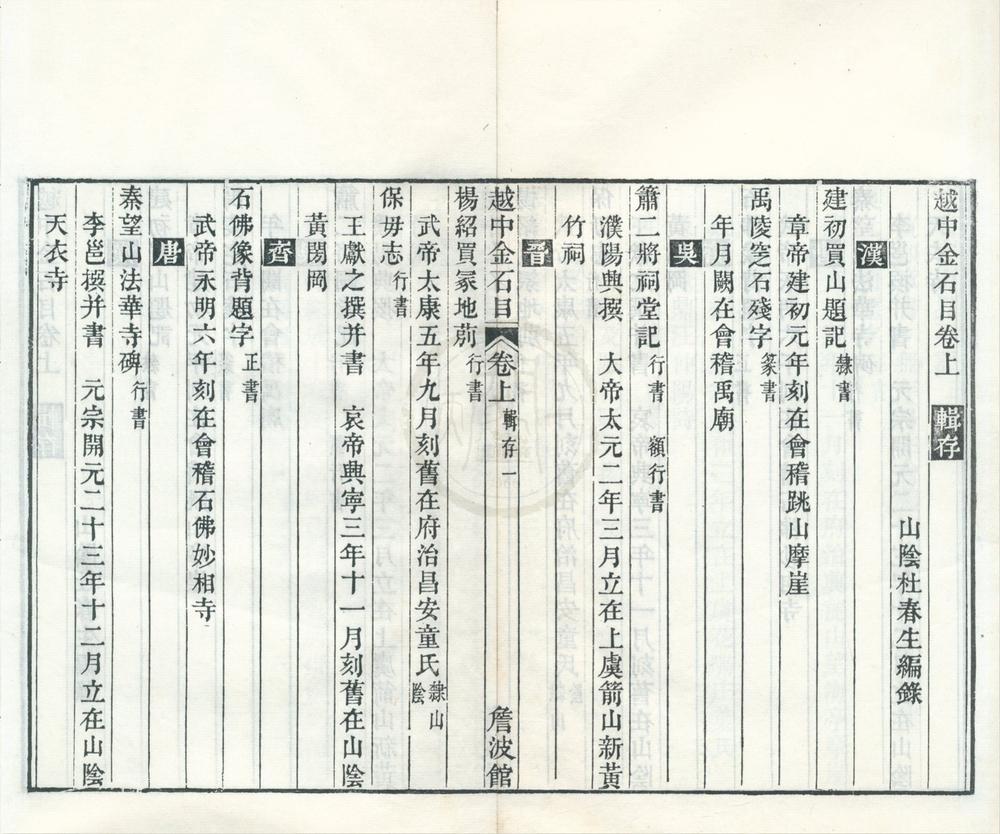 越中金石目卷上 輯存
山陰杜春生編錄
漢
建初買山題記 隸書
章帝建初元年刻在會稽跳山摩崖
禹陵窆石殘字 篆書
年月闕在會稽禹廟
吳
蕭二將祠堂記 行書 額行書
濮陽興撰 大帝太元二年三月立在上虞箭山新黃
竹祠
晉
越中金石目 卷上 輯存一 詹波館
楊紹買冢地莂 行書
武帝太康五年九月刻舊在府治昌安童氏 隸山陰
保毋志 行書
王獻之撰并書 哀帝興寧三年十一月刻舊在山陰
黃閍岡
齊
石佛像背題字 正書
武帝永明六年刻在會稽石佛妙相寺
唐
秦望山法華寺碑 行書
李邕撰并書 元宗開元二十三年十二月立在山陰
天衣寺